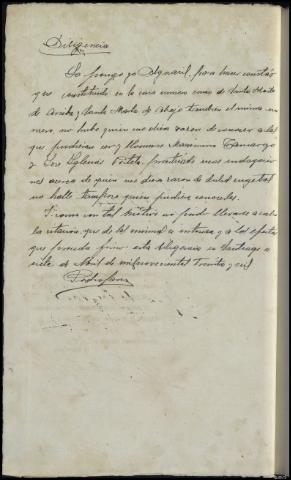 Diligencia
La pongo yo Alguacil, para hacer constar
que constituido en la casa numero cinco de Santa Marta
de Arriba y Santa Marta de Abajo tambien el mismo nu-
mero, no hubo quien me diera razon de conocer a los
que pudieran ser y llamarse Maximino
y Jose Portela, practicado unas indagacio-
nes acerca de quien me diera razon de tales sugetos
no halle tampoco quien pudiera conocerles.
Y como con tal motivo no puedo llevarse a cabo
la citacion que de los mismos se interesa y a los efectos
que proceda firmo esta diligencia en Santiago a
siete de Abril de mil novecientos treinta y seis